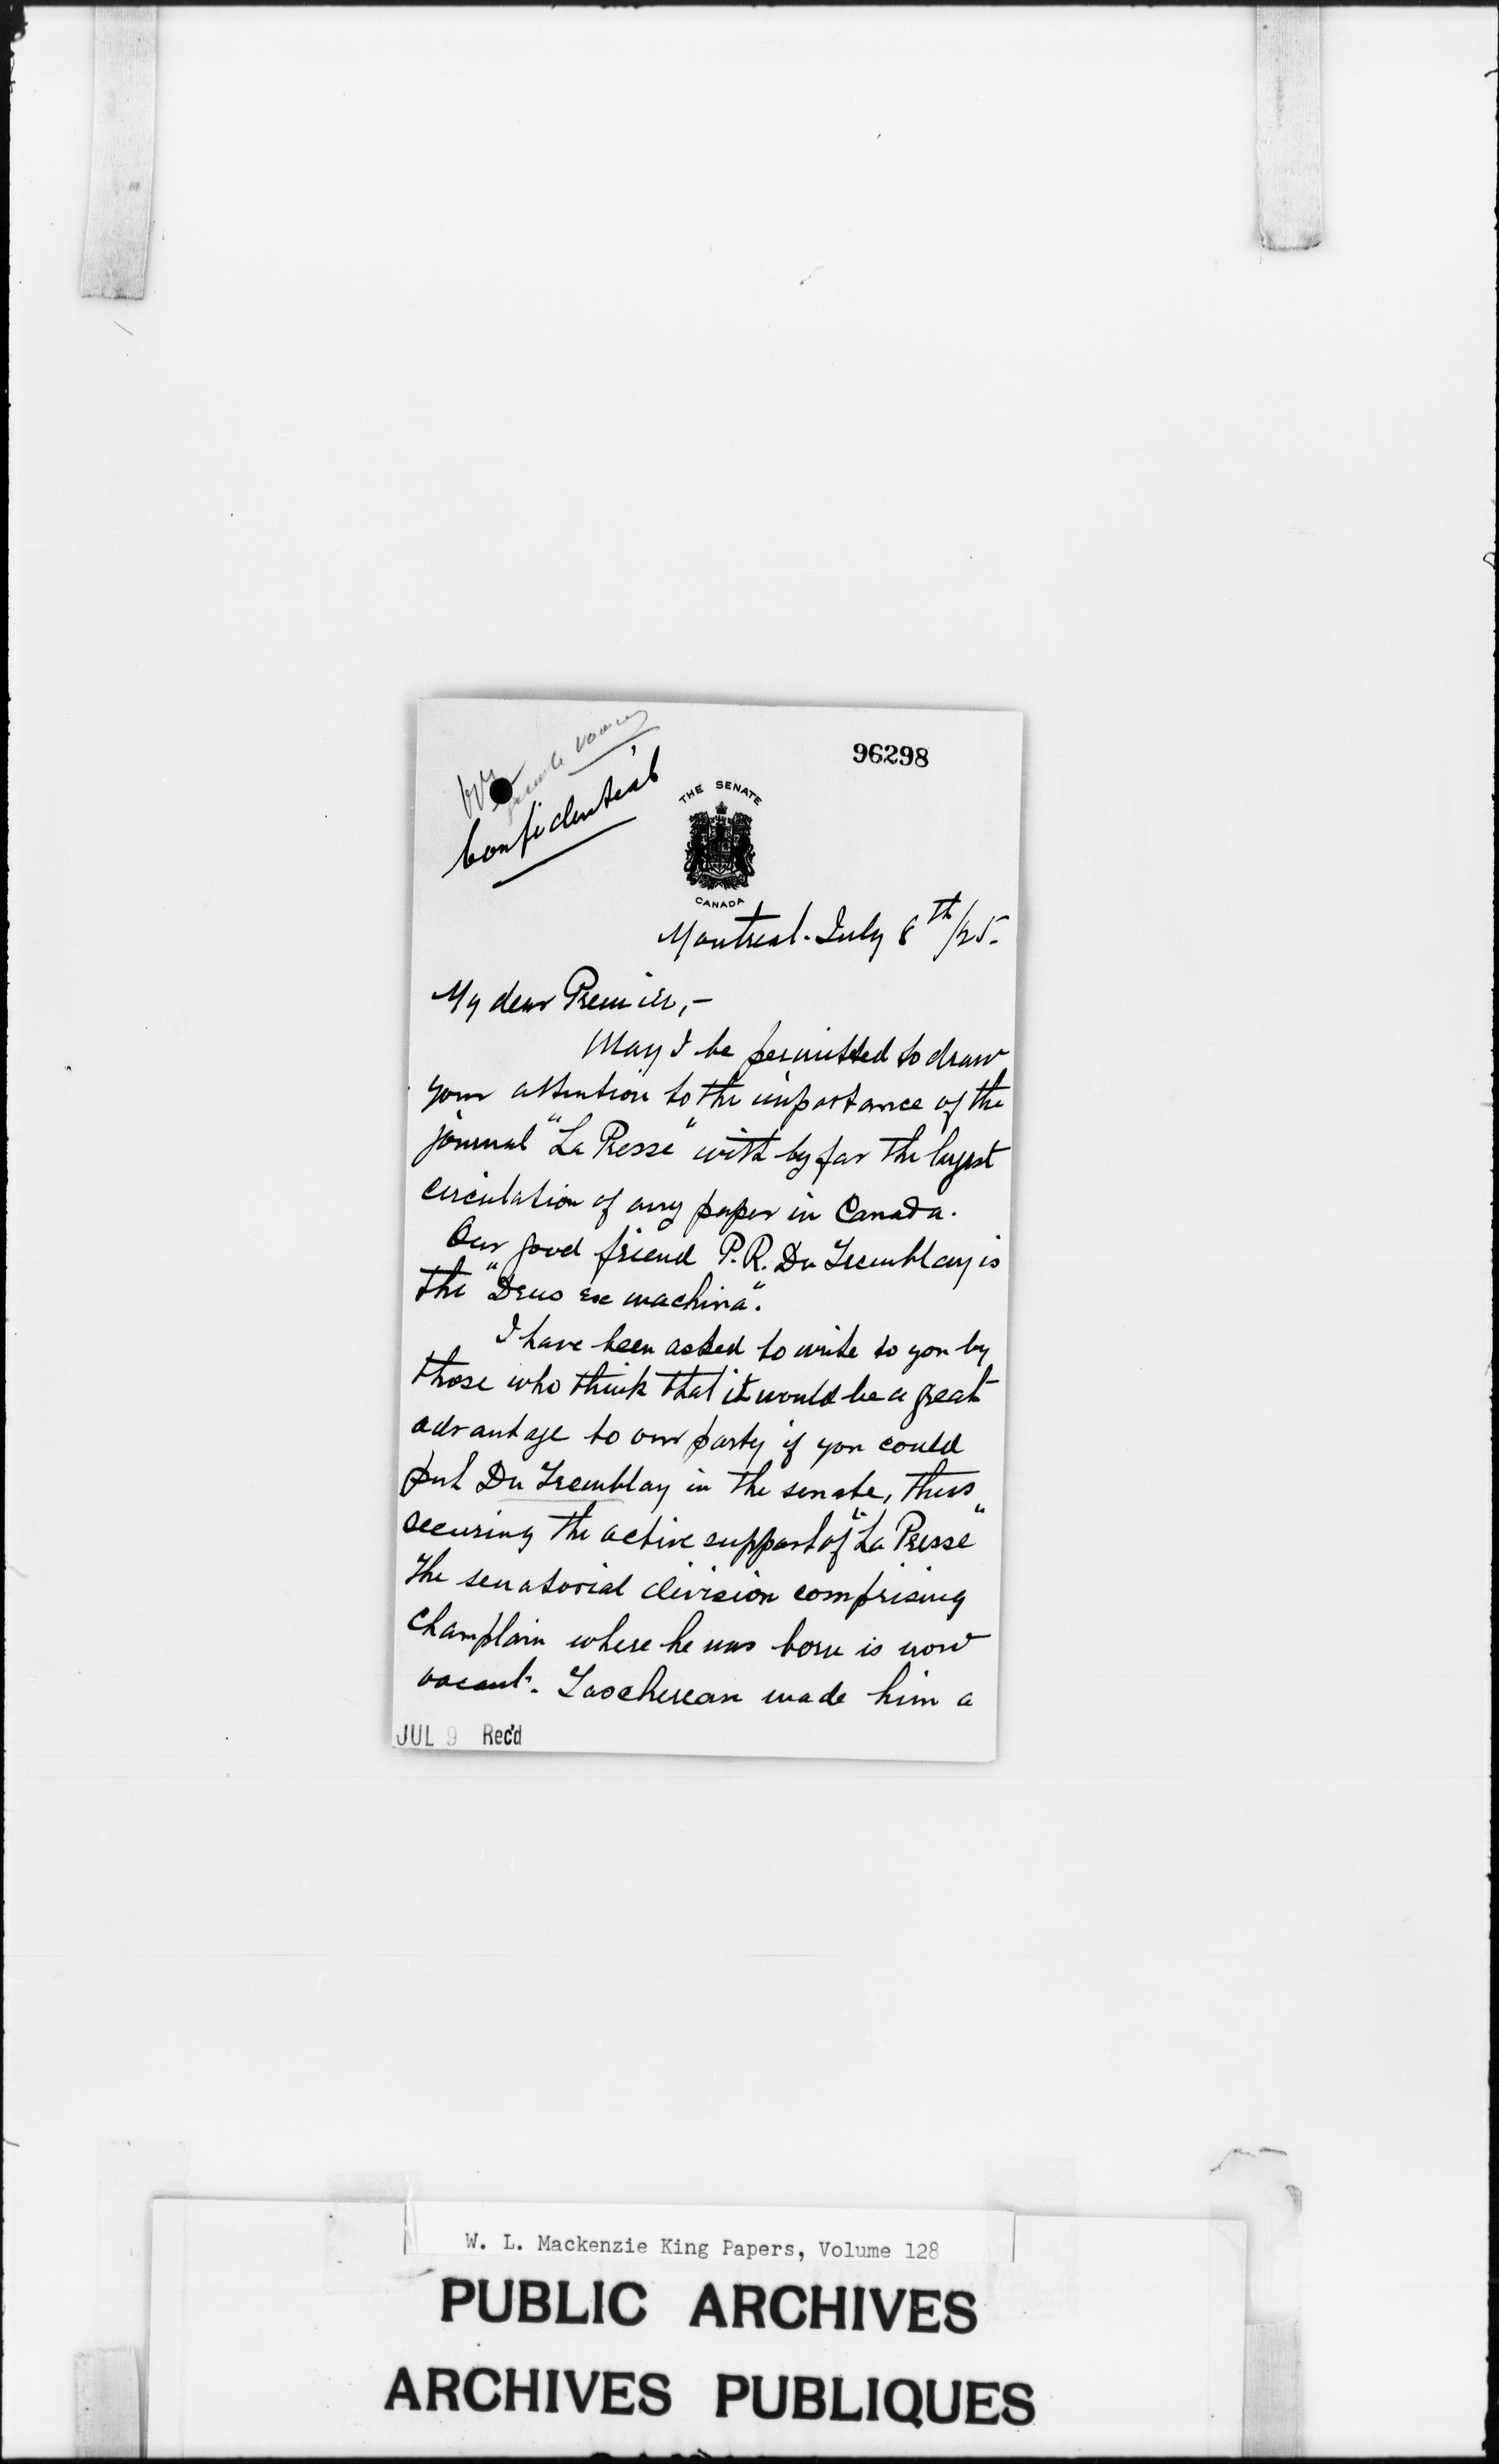 96298
Confidential
THE SENATE
CANADA
Montreal. July 8th/25.
My dear Premier, -
May I be permitted to draw
your attention to the importance of the
journal "La Presse" with by far the largest
circulation of any paper in Canada.
Our good friend P. R. Du Tremblay is
the "Deus ex machina".
I have been asked to write to you by
those who think that it would be a great
advantage to our party if you could
put Du Tremblay in the senate, thus
securing the active support of "La Presse"
The senatorial division comprising
Champlain where he was born is now
vacant. Taschereau made him a
JUL 9 Rec'd
W. L. Mackenzie King Papers, Volume 128
PUBLIC ARCHIVES
ARCHIVES PUBLIQUES